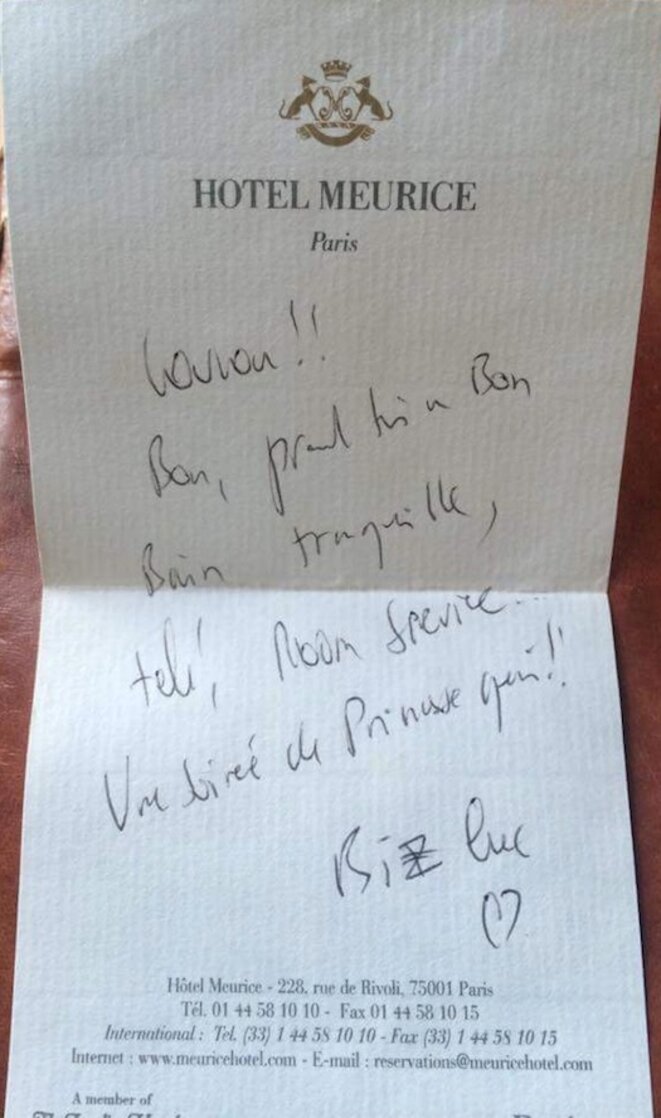 HOTEL MEURICE
Paris
Coucou!!
Bon, prend toi un Bon
Bain tranquille,
télé, Room Service...
Une soirée de Princesse quoi!!
BIZ Luc
Hôtel Meurice - 228, rue de Rivoli, 75001 Paris
Tél. 01 44 58 10 10 - Fax 01 44 58 10 15
International : Tel. (33) 1 44 58 10 10 - Fax (33) 1 44 58 10 15
Internet : www.meuricehotel.com - E-mail : reservations@meuricehotel.com
A member of